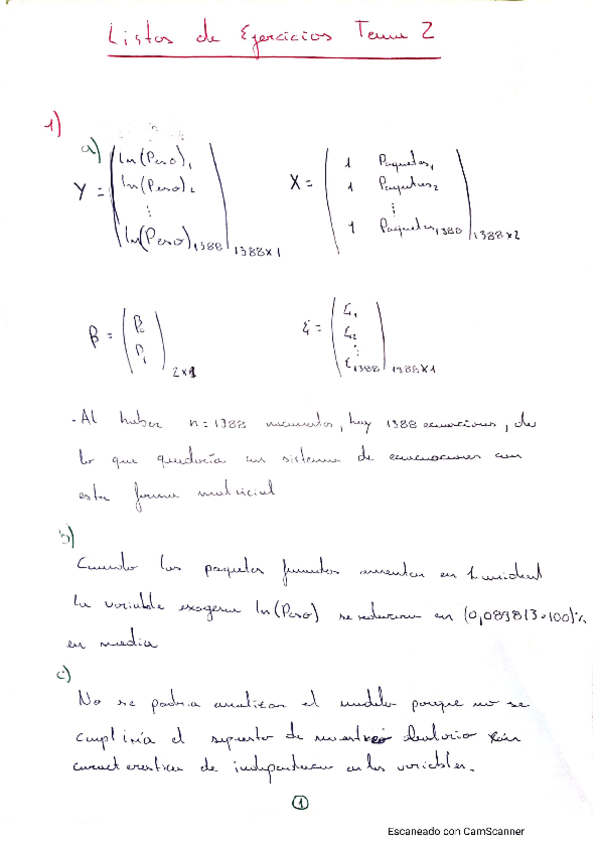 Listas de Ejercicios Tema 2
1)
a)
Y = ( ln(Peso)₁ ln(Peso)₂ ⋮ ln(Peso)₁₃₈₈ ) 1388×1
X = ( 1 Paquetes₁ 1 Paquetes₂ ⋮ 1 Paquetes₁₃₈₈ ) 1388×2
β = ( β₀ β₁ ) 2×1
ε = ( ε₁ ε₂ ⋮ ε₁₃₈₈ ) 1388×1
- Al haber n = 1388 , hay 1388 ecuaciones, de
lo que quedaría un sistema de ecuaciones con
esta forma matricial
b)
Cuando los paquetes fumados aumentan en 1 unidad
la variable exogena ln(Peso) se reducira en (0,089813·100)%
en media
c)
No se podria analizar el modelo porque no se
cumpliría el supuesto de muestreo aleatorio
de en las variables.
1
Escaneado con CamScanner